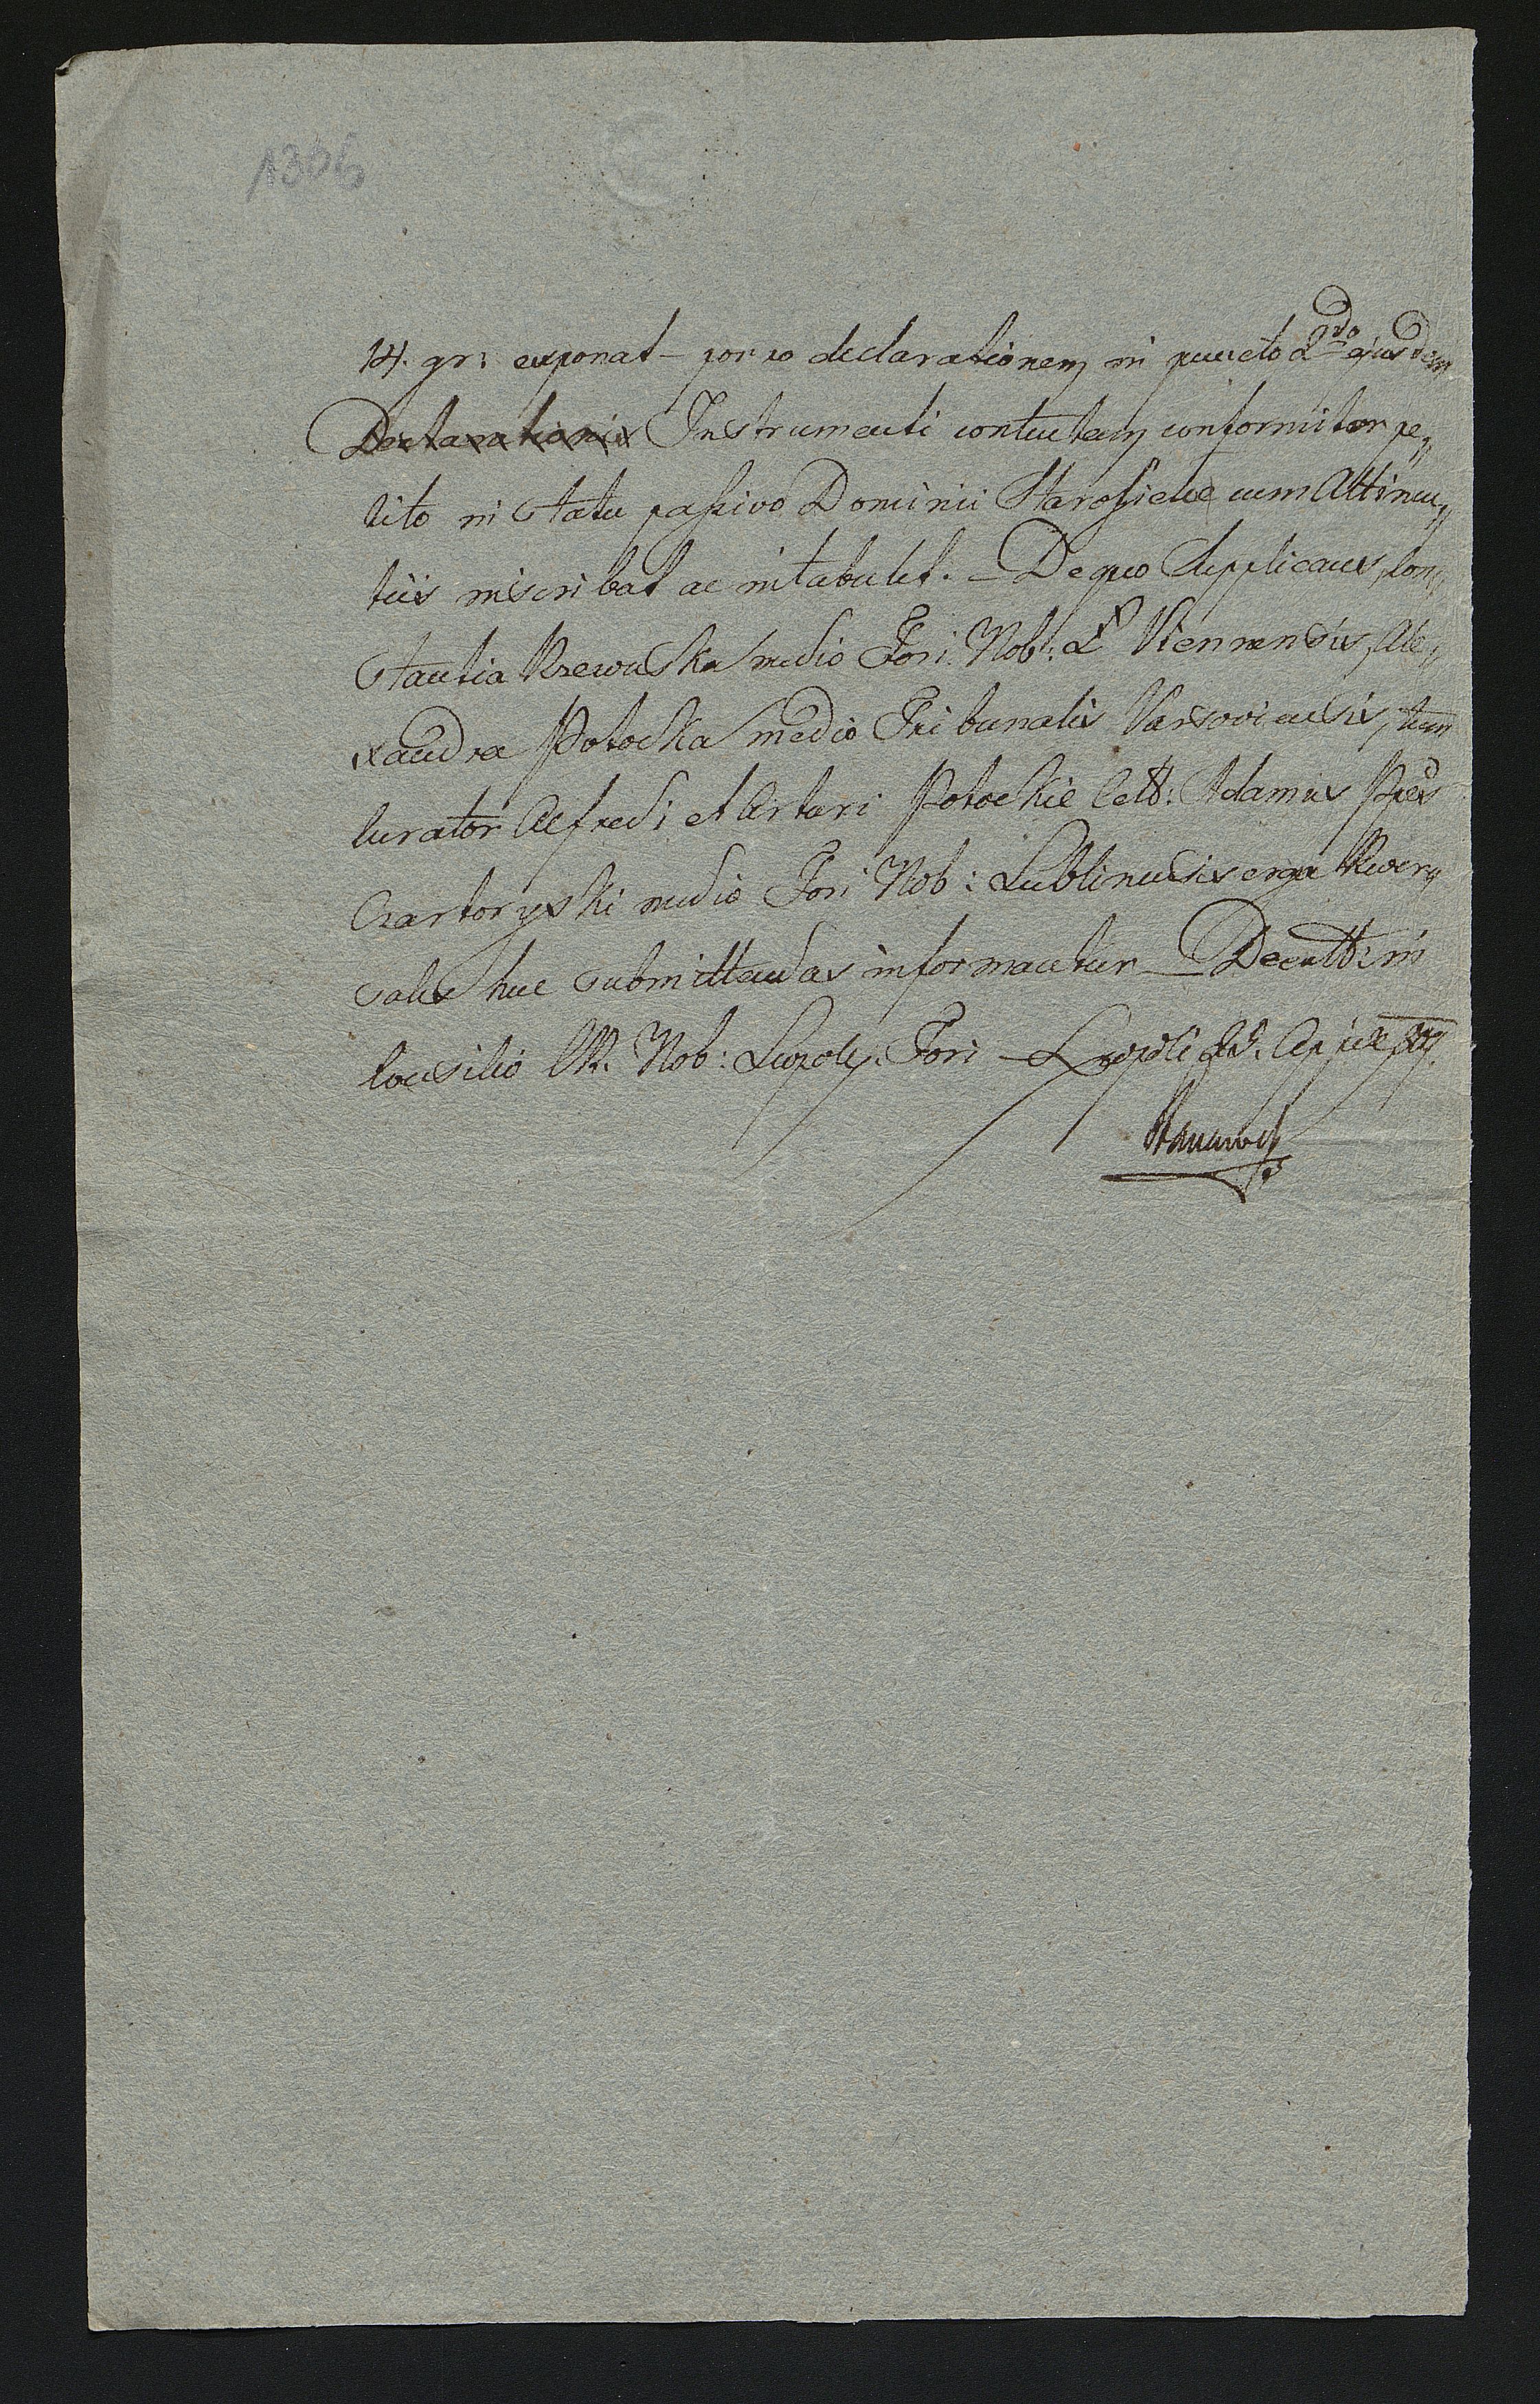 1306
14. gr: exponat – porro declarationem in puncto 2do ejusdem
Declarationis Instrumenti contentam conformiter pe„
tito in Statu passivo Dominii Starosielce cum Attinen„
tiis inscribat ac intabulet. – De quo Supplicans, Con„
stantia Rzewuska medio Fori Nob: Viennensis, Ale„
xandra Potocka medio Tribunalis Varsoviensis, tum
Curator Alfredi et Arturi Potockie Cels: Adamus Pps
Czartoryski medio Fori Nob: Lublinensis erga Rever„
sales huc submittendas informantur – Ex Cons: in
Consilio CR. Nob: Leopol: Fori Leopoli